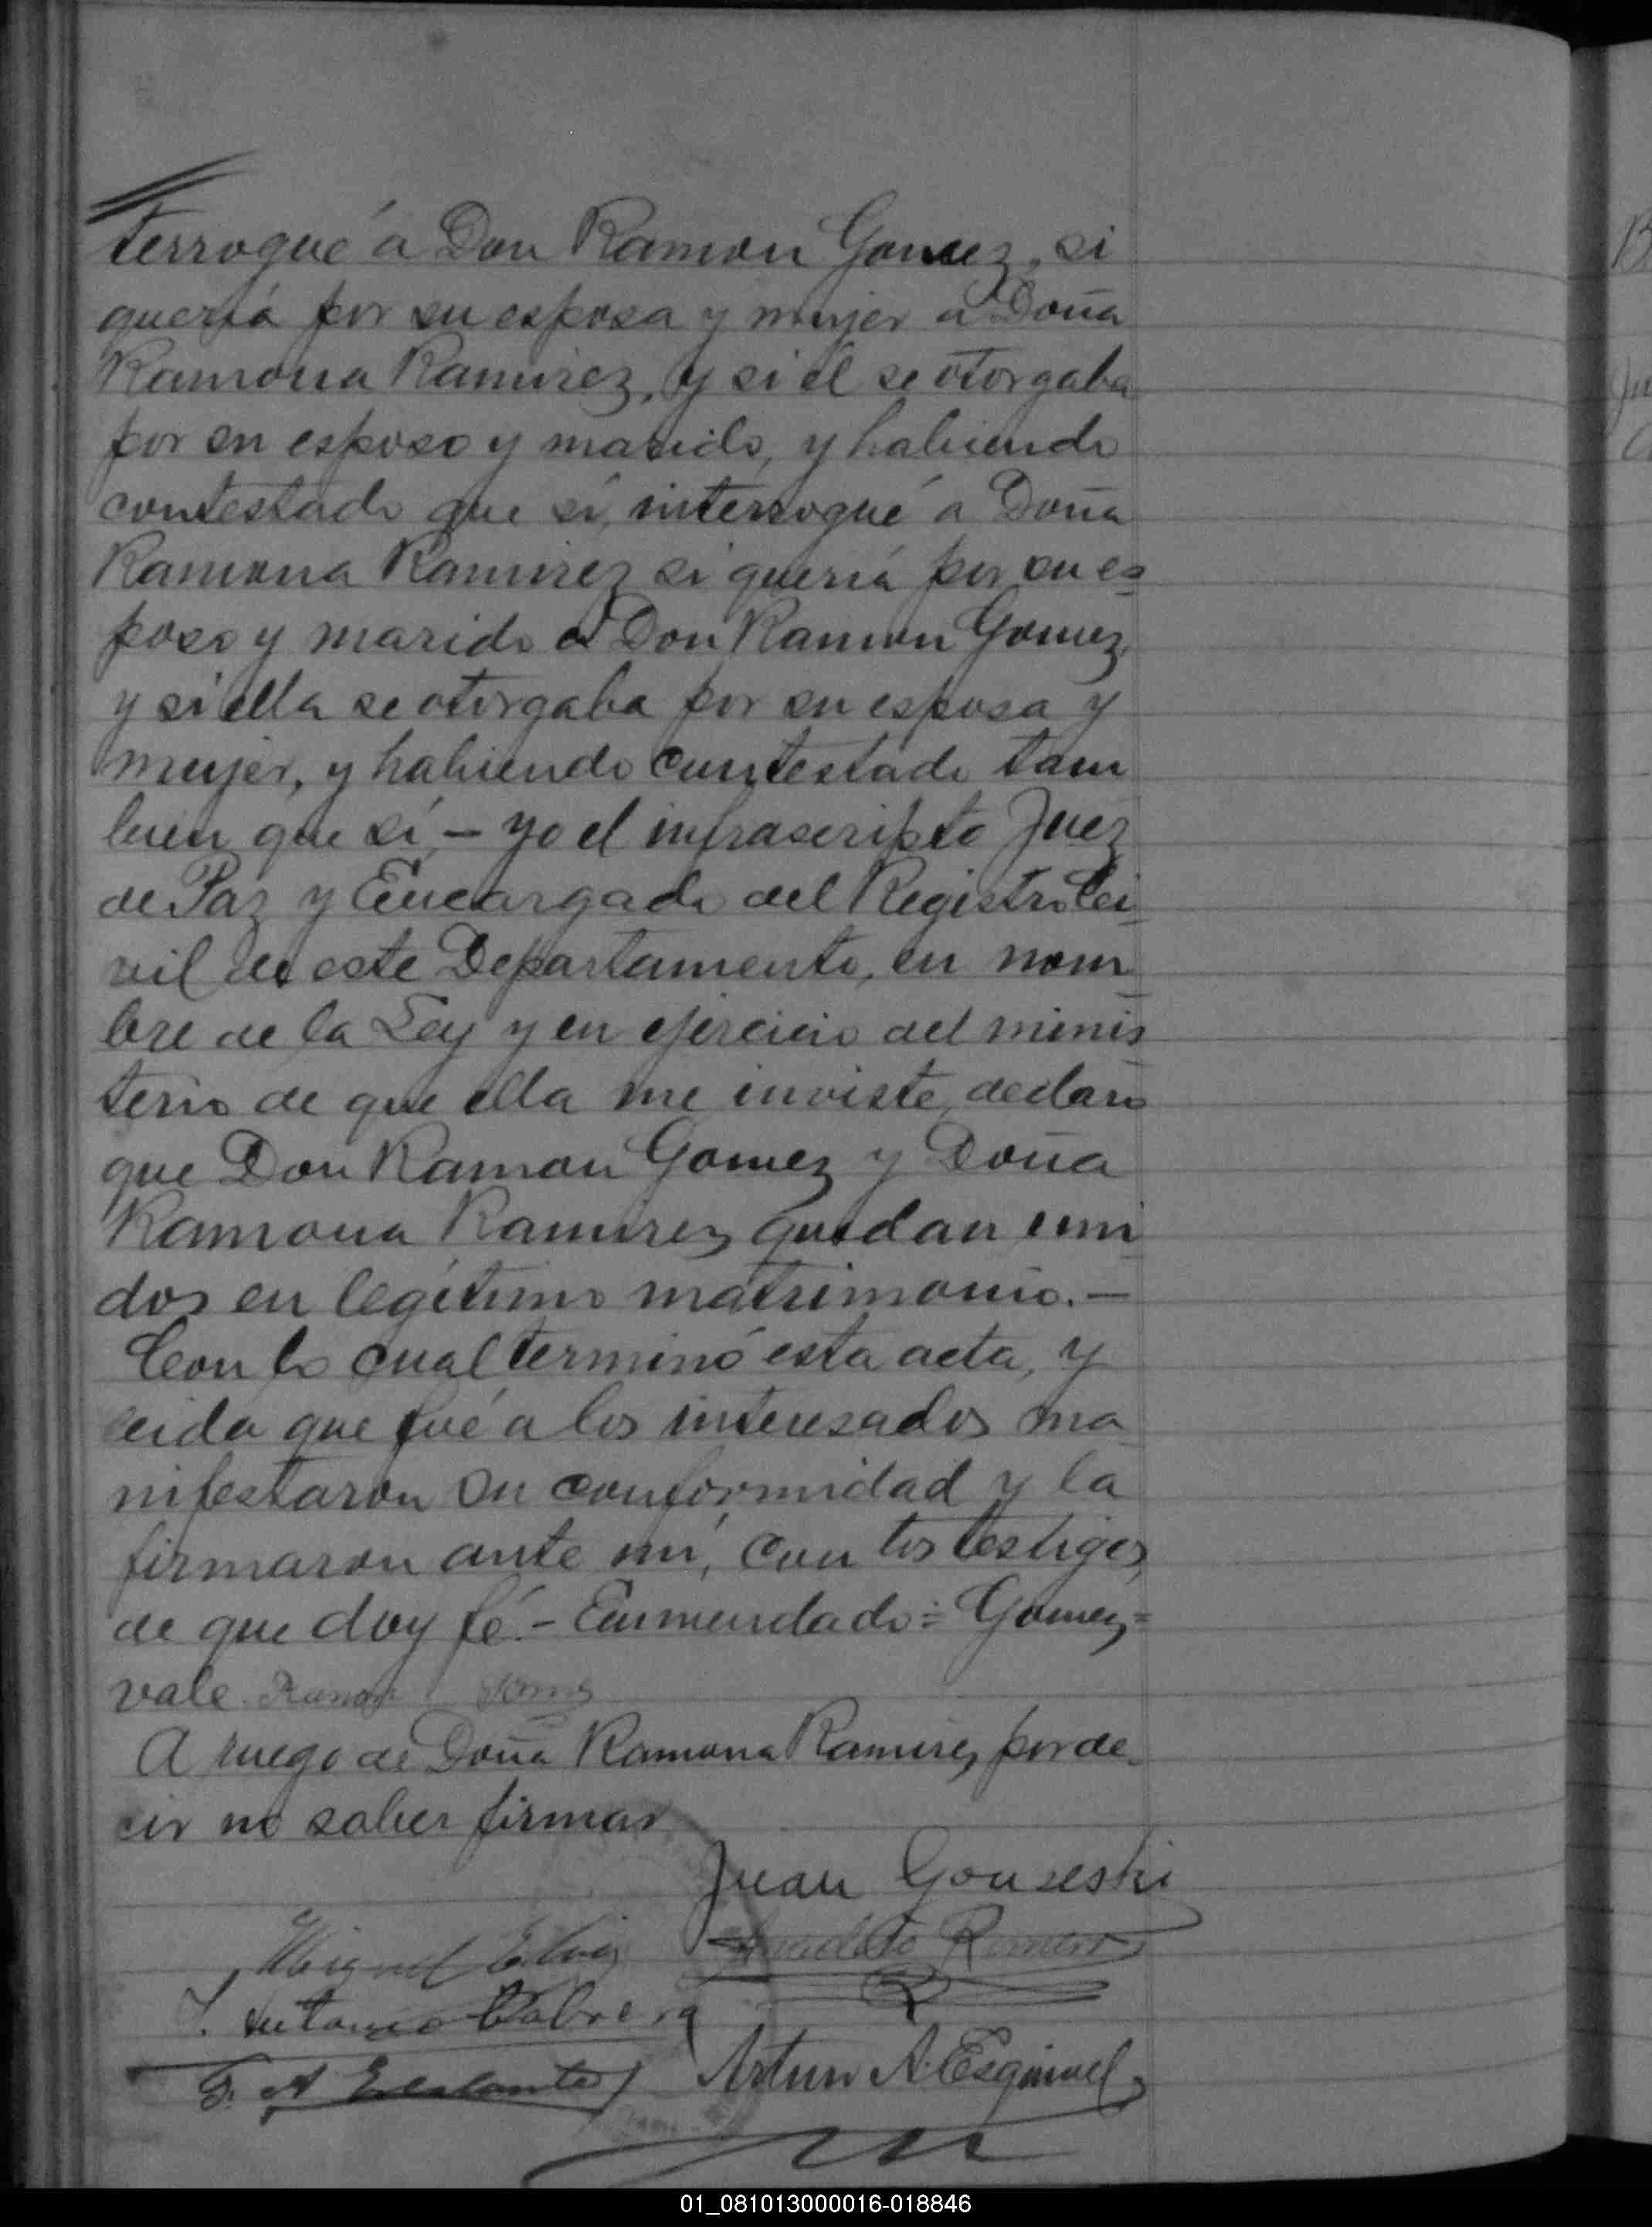 terrogué á Don Ramon Gomez, si
quería por su esposa y mujer a Doña
Ramona Ramirez, y si él se otorgaba
por su esposo y marido, y habiendo
contestado que sí, interrogué a Doña
Ramona Ramirez si quería por su es
poso y marido a Don Ramon Gomez,
y si ella se otorgaba por su esposa y
mujer, y habiendo contestado tam
bien que sí, – yo el infrascripto Juez
de Paz y Encargado del Registro Ci
vil de este Departamento, en nom
bre de la Ley y en ejercicio del minis
terio de que ella me inviste, declaro
que Don Ramon Gomez y Doña
Ramona Ramirez quedan uni
dos en legítimo matrimonio. –
Con lo cual terminó esta acta, y
leida que fué a los interesados ma
nifestaron su conformidad y la
firmaron ante mí, con los testigos,
de que doy fé. – Enmendado = Gomez =
vale. Ramon Gomes
A ruego de Doña Ramona Ramirez, por de
cir no saber firmar
Juan Gouseski
Miguel Romero
Antonio Cabrera
Arturo A. Esquivel
13
Ju
01_081013000016-018846